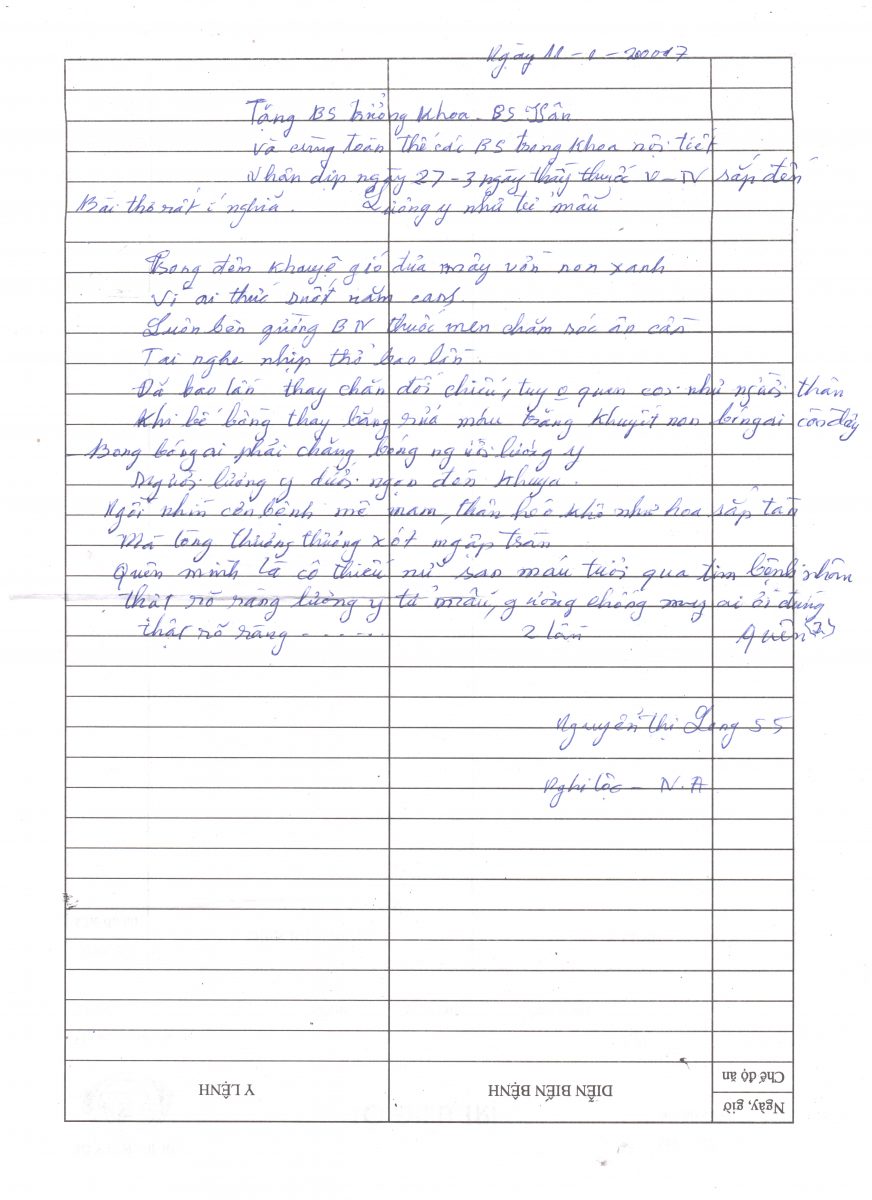 Ngày 11 - 1 - 200017
Tặng BS trưởng khoa - BS Hân
và cùng toàn thể các BS trong khoa nội tiết
Nhân dịp ngày 27-3 ngày thầy thuốc V-N sắp đến
Bài thơ rất í nghĩa. Lương y như từ mẫu
Trong đêm khuya gió đưa mây vờn non xanh
Vì ai thức suốt năm canh
Luôn bên giường BN thuốc men chăm sóc ân cần
Tai nghe nhịp thở bao lần.
Đã bao lần thay chăn đổi chiếu, tuy o quen coi như người thân
Khi bế bồng thay băng rửa máu trăng khuyết non bóng ai còn đây
- Bong bóng ai phải chăng bóng người lương y
Người lương y dưới ngọn đèn khuya.
Ngồi nhìn cơn bệnh mê mam, thân héo khô như hoa sắp tàn
Mà lòng thương thương xót ngập tràn
Quên mình là cô thiếu nữ sao máu tươi qua tim bệnh nhân
thật rõ ràng lương y từ mẫu, gương chống mỹ ai ơi đừng
thật rõ ràng ....... 2 lần quên (2)
Nguyễn Thị Long 55
Nghi Lộc - N.A
Ngày, giờ
Chế độ ăn
DIỄN BIẾN BỆNH
Y LỆNH